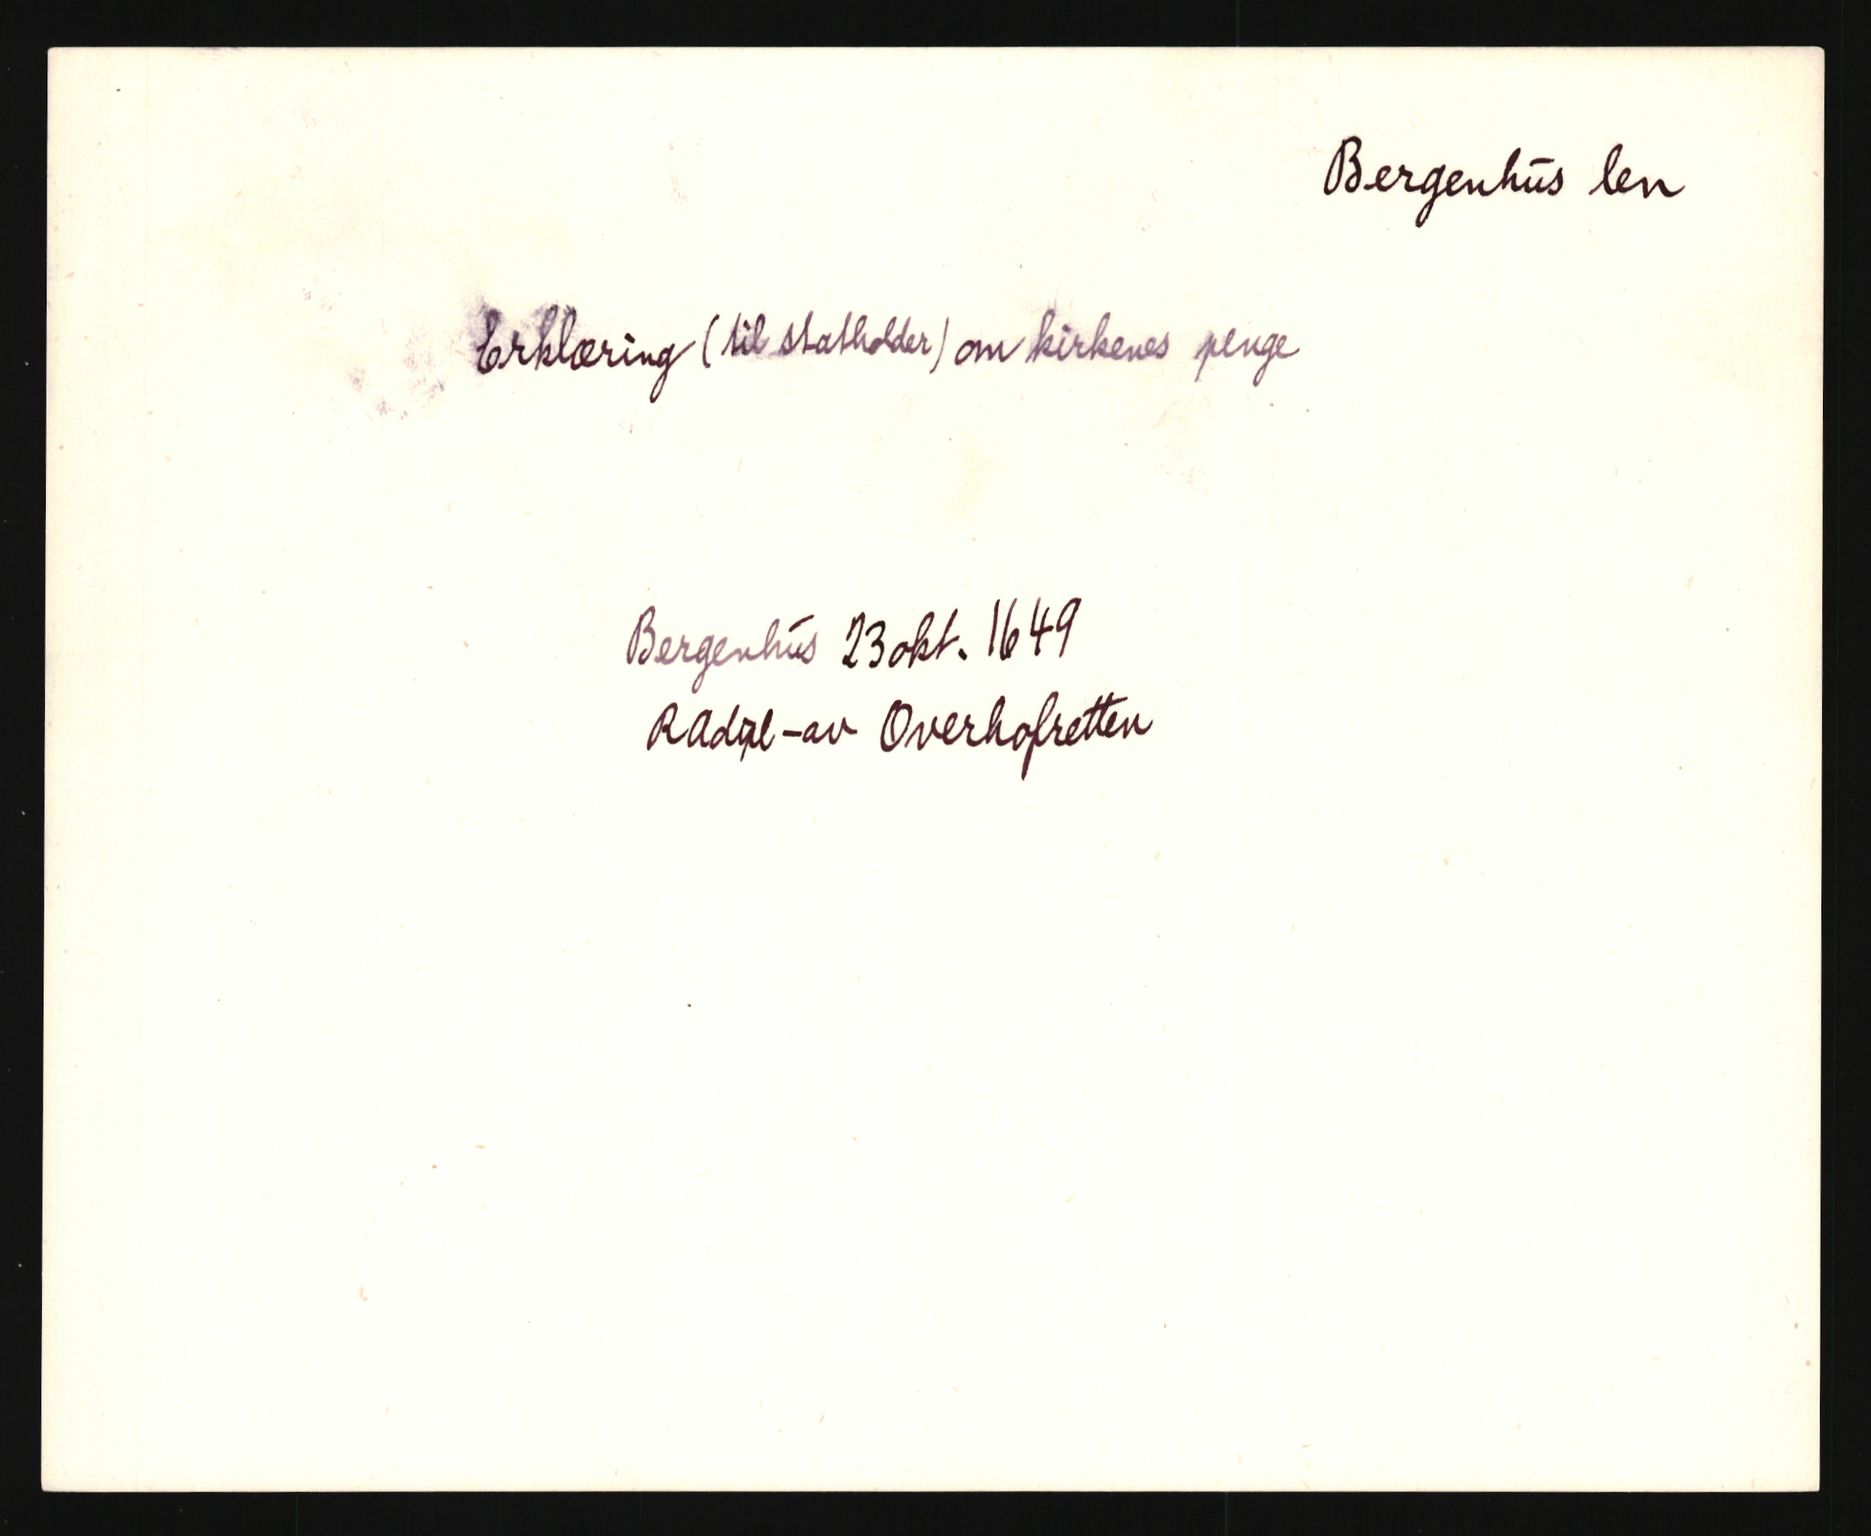 Bergenhūs len
Erklæring (til statholder) om kirkenes penge
Bergenhūs 23 okt. 1649
R Adgl - av Overhofretten